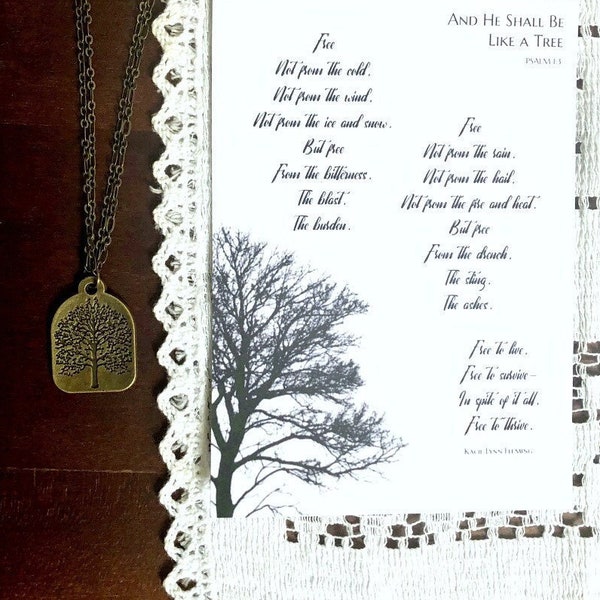 And He Shall Be
Like a Tree
Psalm 1:3
Free
Not from the cold.
Not from the wind.
Not from the ice and snow.
But free
From the bitterness.
The blast.
The burden.
Free
Not from the rain.
Not from the hail.
Not from the fire and heat.
But free
From the drench.
The sting.
The ashes.
Free to live.
Free to survive—
In spite of it all.
Free to thrive.
Kacie Lynn Fleming